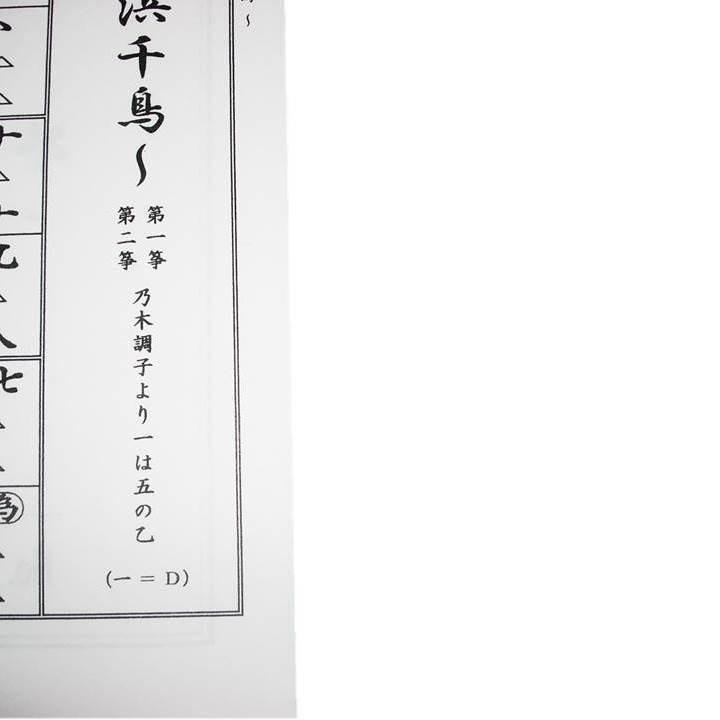 浜千鳥～
第一箏
第二箏
乃木調子より一は五の乙
(一 = D)
十
九
八
七
為